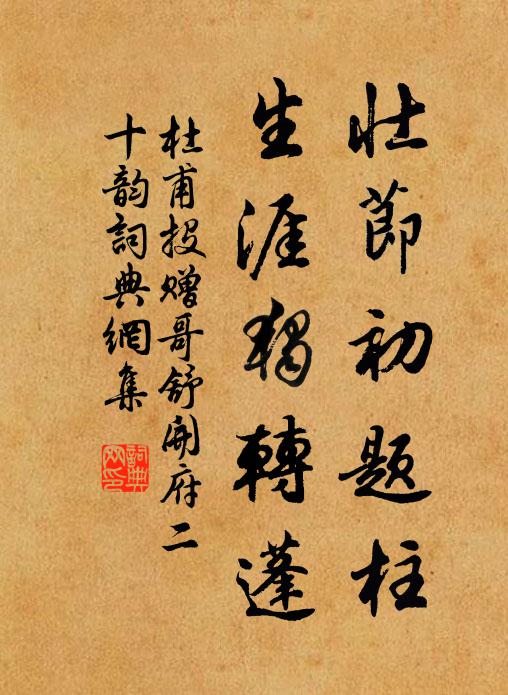 壮節初題柱
生涯獨轉蓬
杜甫投赠哥舒開府二
十韵詞典網集
詞典
网印